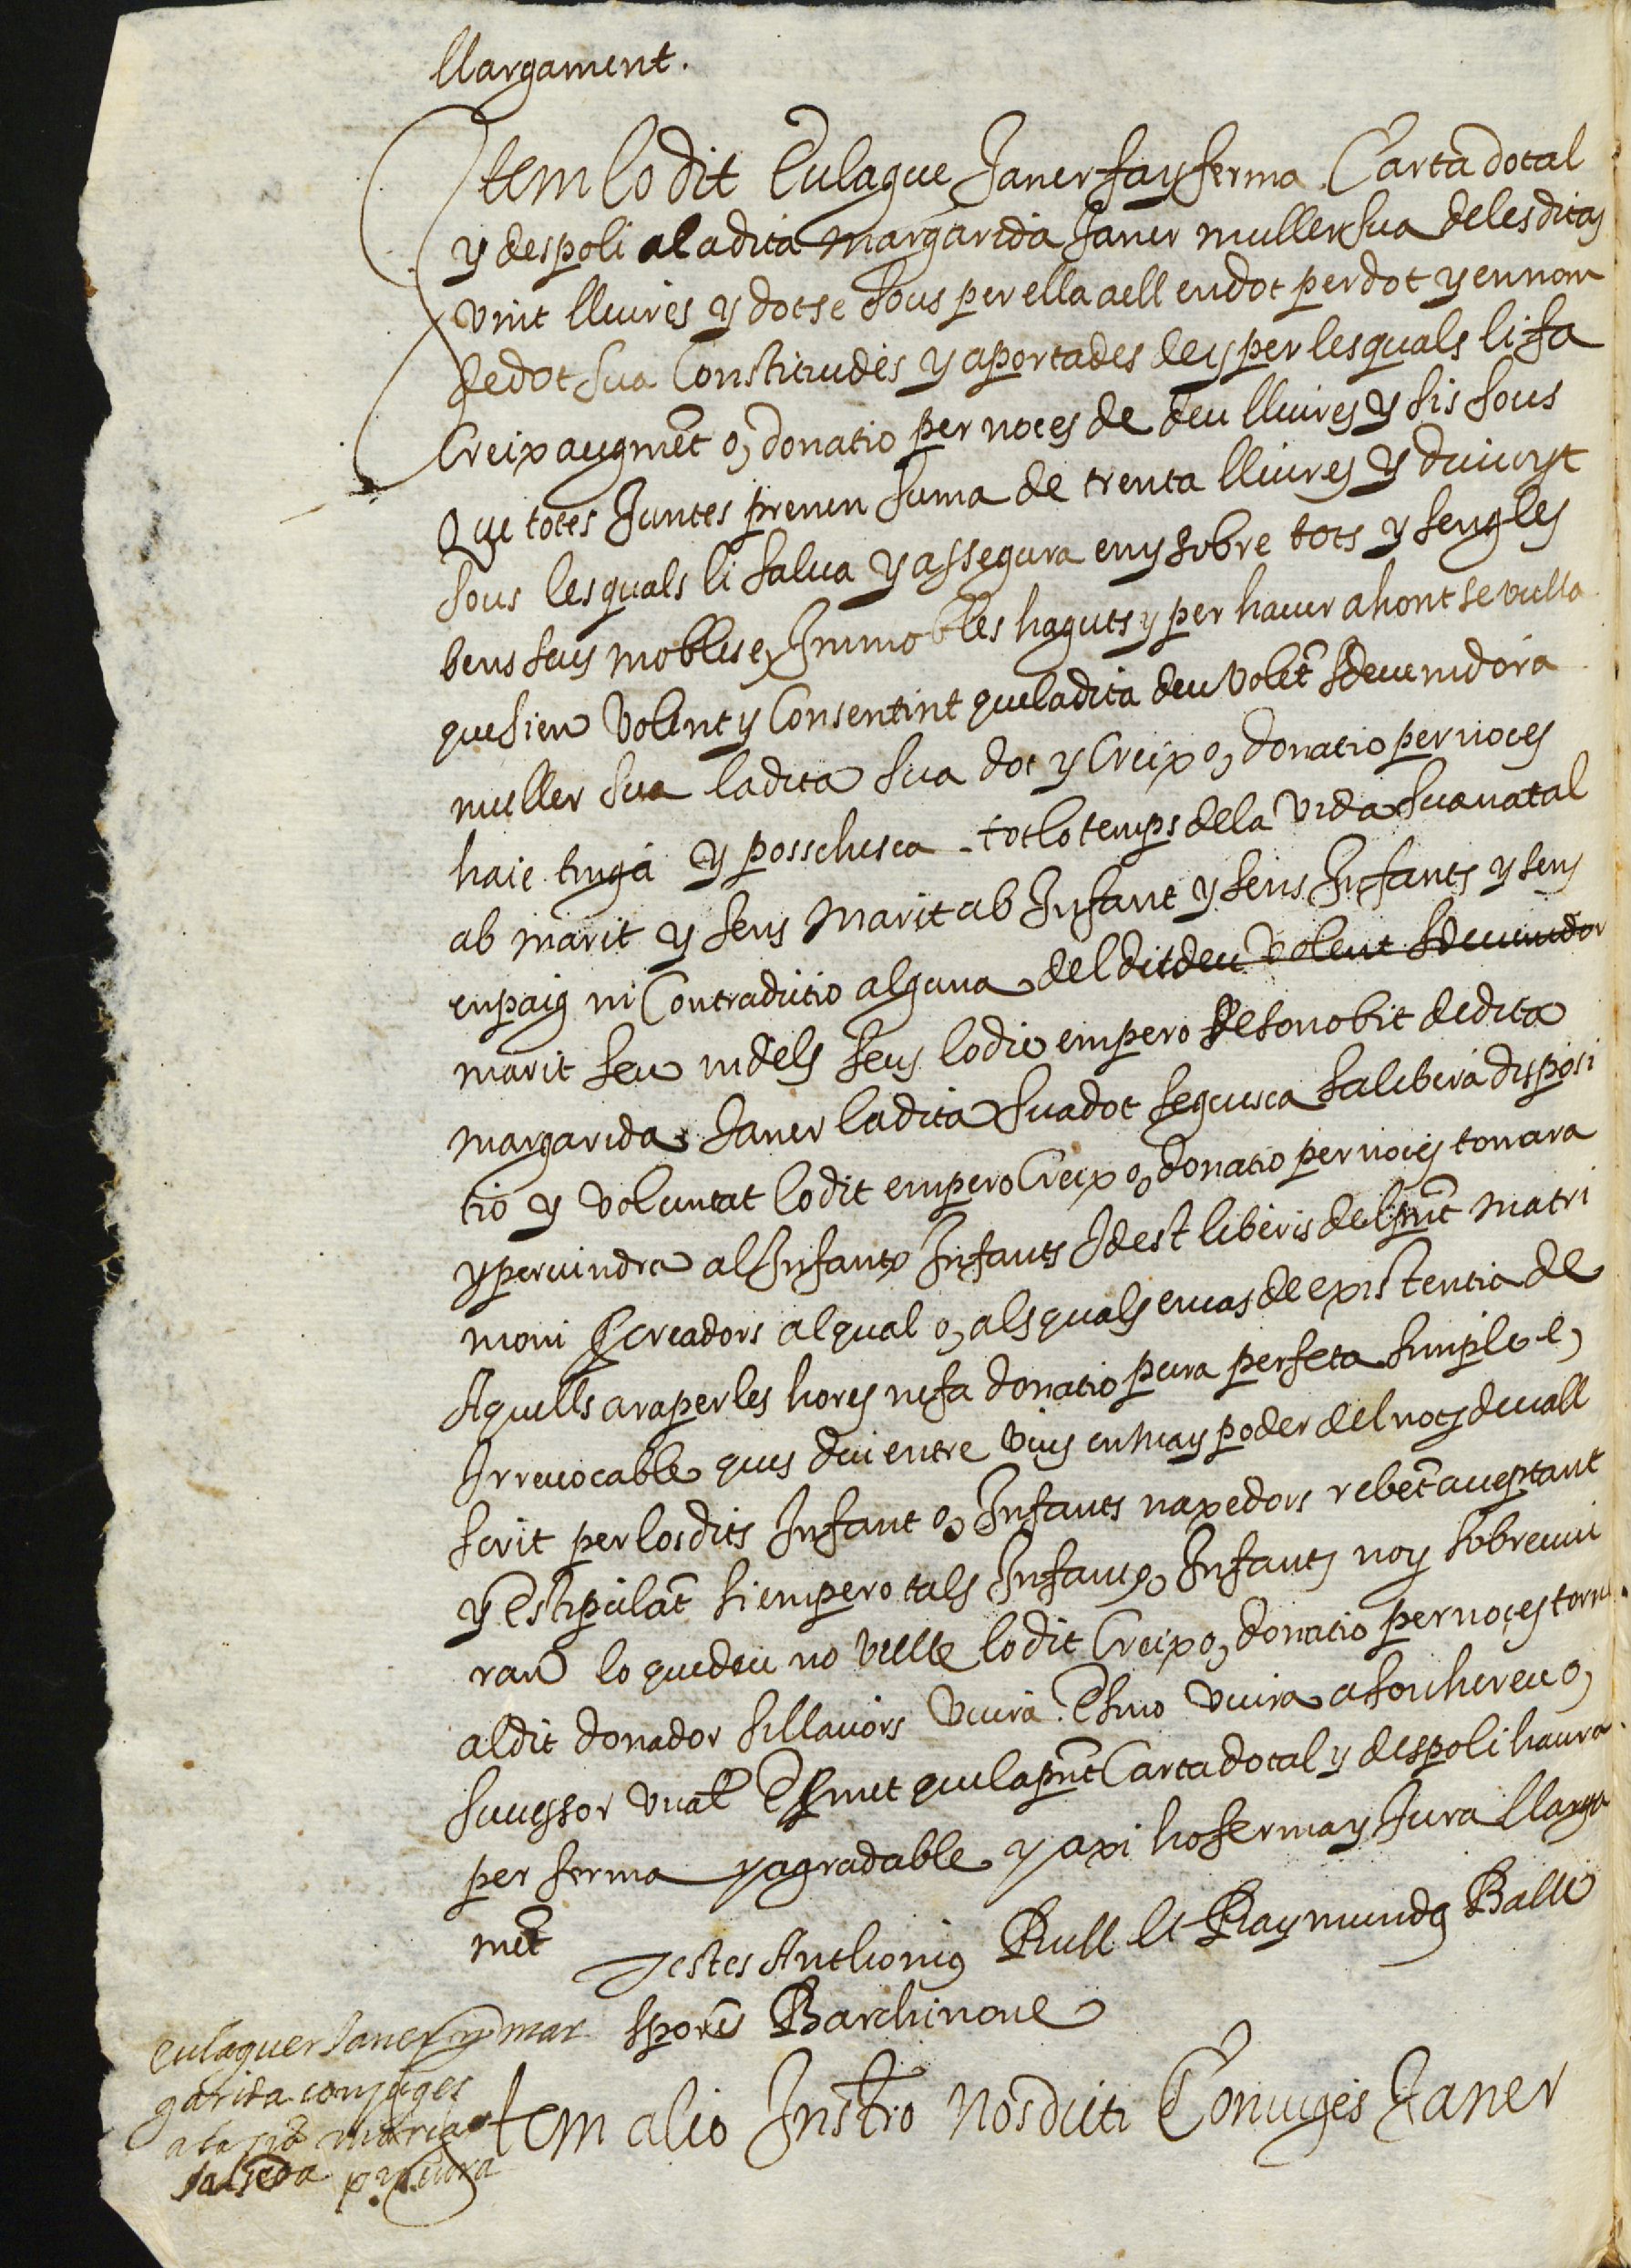 llargament.
Item lo dit Eulague Janer fa y ferma Carta dotal
y despoli a la dita Margarida Janer muller sua de les ditas
vint lliures y dotse sous per ella a ell en dot per dot y en nom
de dot sua Constituides y aportades de y per les quals li fa
Creix augmēt o, donatio per noces de deu lliures y sis sous
Que totes Juntes prenen suma de trenta lliures y divuyt
sous les quals li salva y assegura en y sobre tots y sengles
bens seus mobles e, Immobles haguts y per haver ahont se vulla
que sien Volent y Consentint que la dita deu volēt sdevenidora
muller sua la dita sua dot y Creix o, donatio per noces
haie tinga y possehesca tot lo temps de la vida sua natal
ab marit y sens Marit ab Infant y sens Infants y sens
enpaig ni Contradictio alguna del dit deu volent sdevenidor
marit seu ni dels seus lo die empero de son obit de dita
Margarida Janer la dita sua dot seguesca sa libera disposi
tio y voluntat lo dit empero Creix o, donatio per noces tornara
y pervindra al Infant o Infants Idest liberis del pnt Matri
moni pcreadors al qual o, als quals en cas de existentia de
Aquells ara per les hores ne fa donatio pura perfeta simple e,
Irrevocable ques diu entre vius en ma y poder del noty devall
scrit per los dits Infant o, Infants naxedors rebēt acceptant
y Estipulāt si empero tals Infant o, Infants noy sobrevivi
ran lo que deu no vulle lo dit Creix o, donatio per noces torne
al dit donador si llavors viura E si no viura a son hereu o,
successor vnal E pmet que la pnt Carta dotal y despoli haura
per ferma y agradable y axi ho ferma y Jura llarga
mēt
Testes Anthonius Rull et Raymundus Balle
sportēs Barchinone
Eulaguer Janer y mar
garida conjuges
a
salseda
Item alio Instro Nos dicti Coniuges Janer